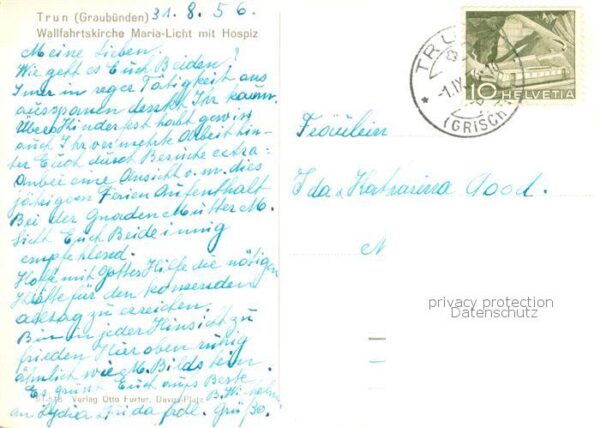 Trun (Graubünden) 31.8.56.
Wallfahrtskirche Maria-Licht mit Hospiz
Meine Lieben.
Wie geht es Euch Beiden?
Imer in reger Tätigkeit aus
ausspanen denkt Ihr kaum.
Übers Kinderfest habt gewiss
auch Ihr vermehrte Arbeit hin-
ter Euch durch Besuche extra.
Anbei eine Ansicht v. m. dies
jährigen Ferien Aufenthalt
Bei der Gnaden Mutter M.
Licht Euch Beide innig
empfehlend.
Hoffe mit Gottes Hilfe die nötigen
Kräfte für den komenden
alltag zu erreichen.
Bin in jeder Hinsicht zu
frieden Hier oben ruhig
ähnlich wie M. Bildstein.
Es grüsst Euch aufs Beste
B.
an Lydia & Frida frdl. Grüsse.
Verlag Otto Furter, Davos-Platz
TRUN
-1.IX.56
(GRISCH
10 HELVETIA
Fräulein
Ida & Katharina Good.
N
privacy protection
Datenschutz